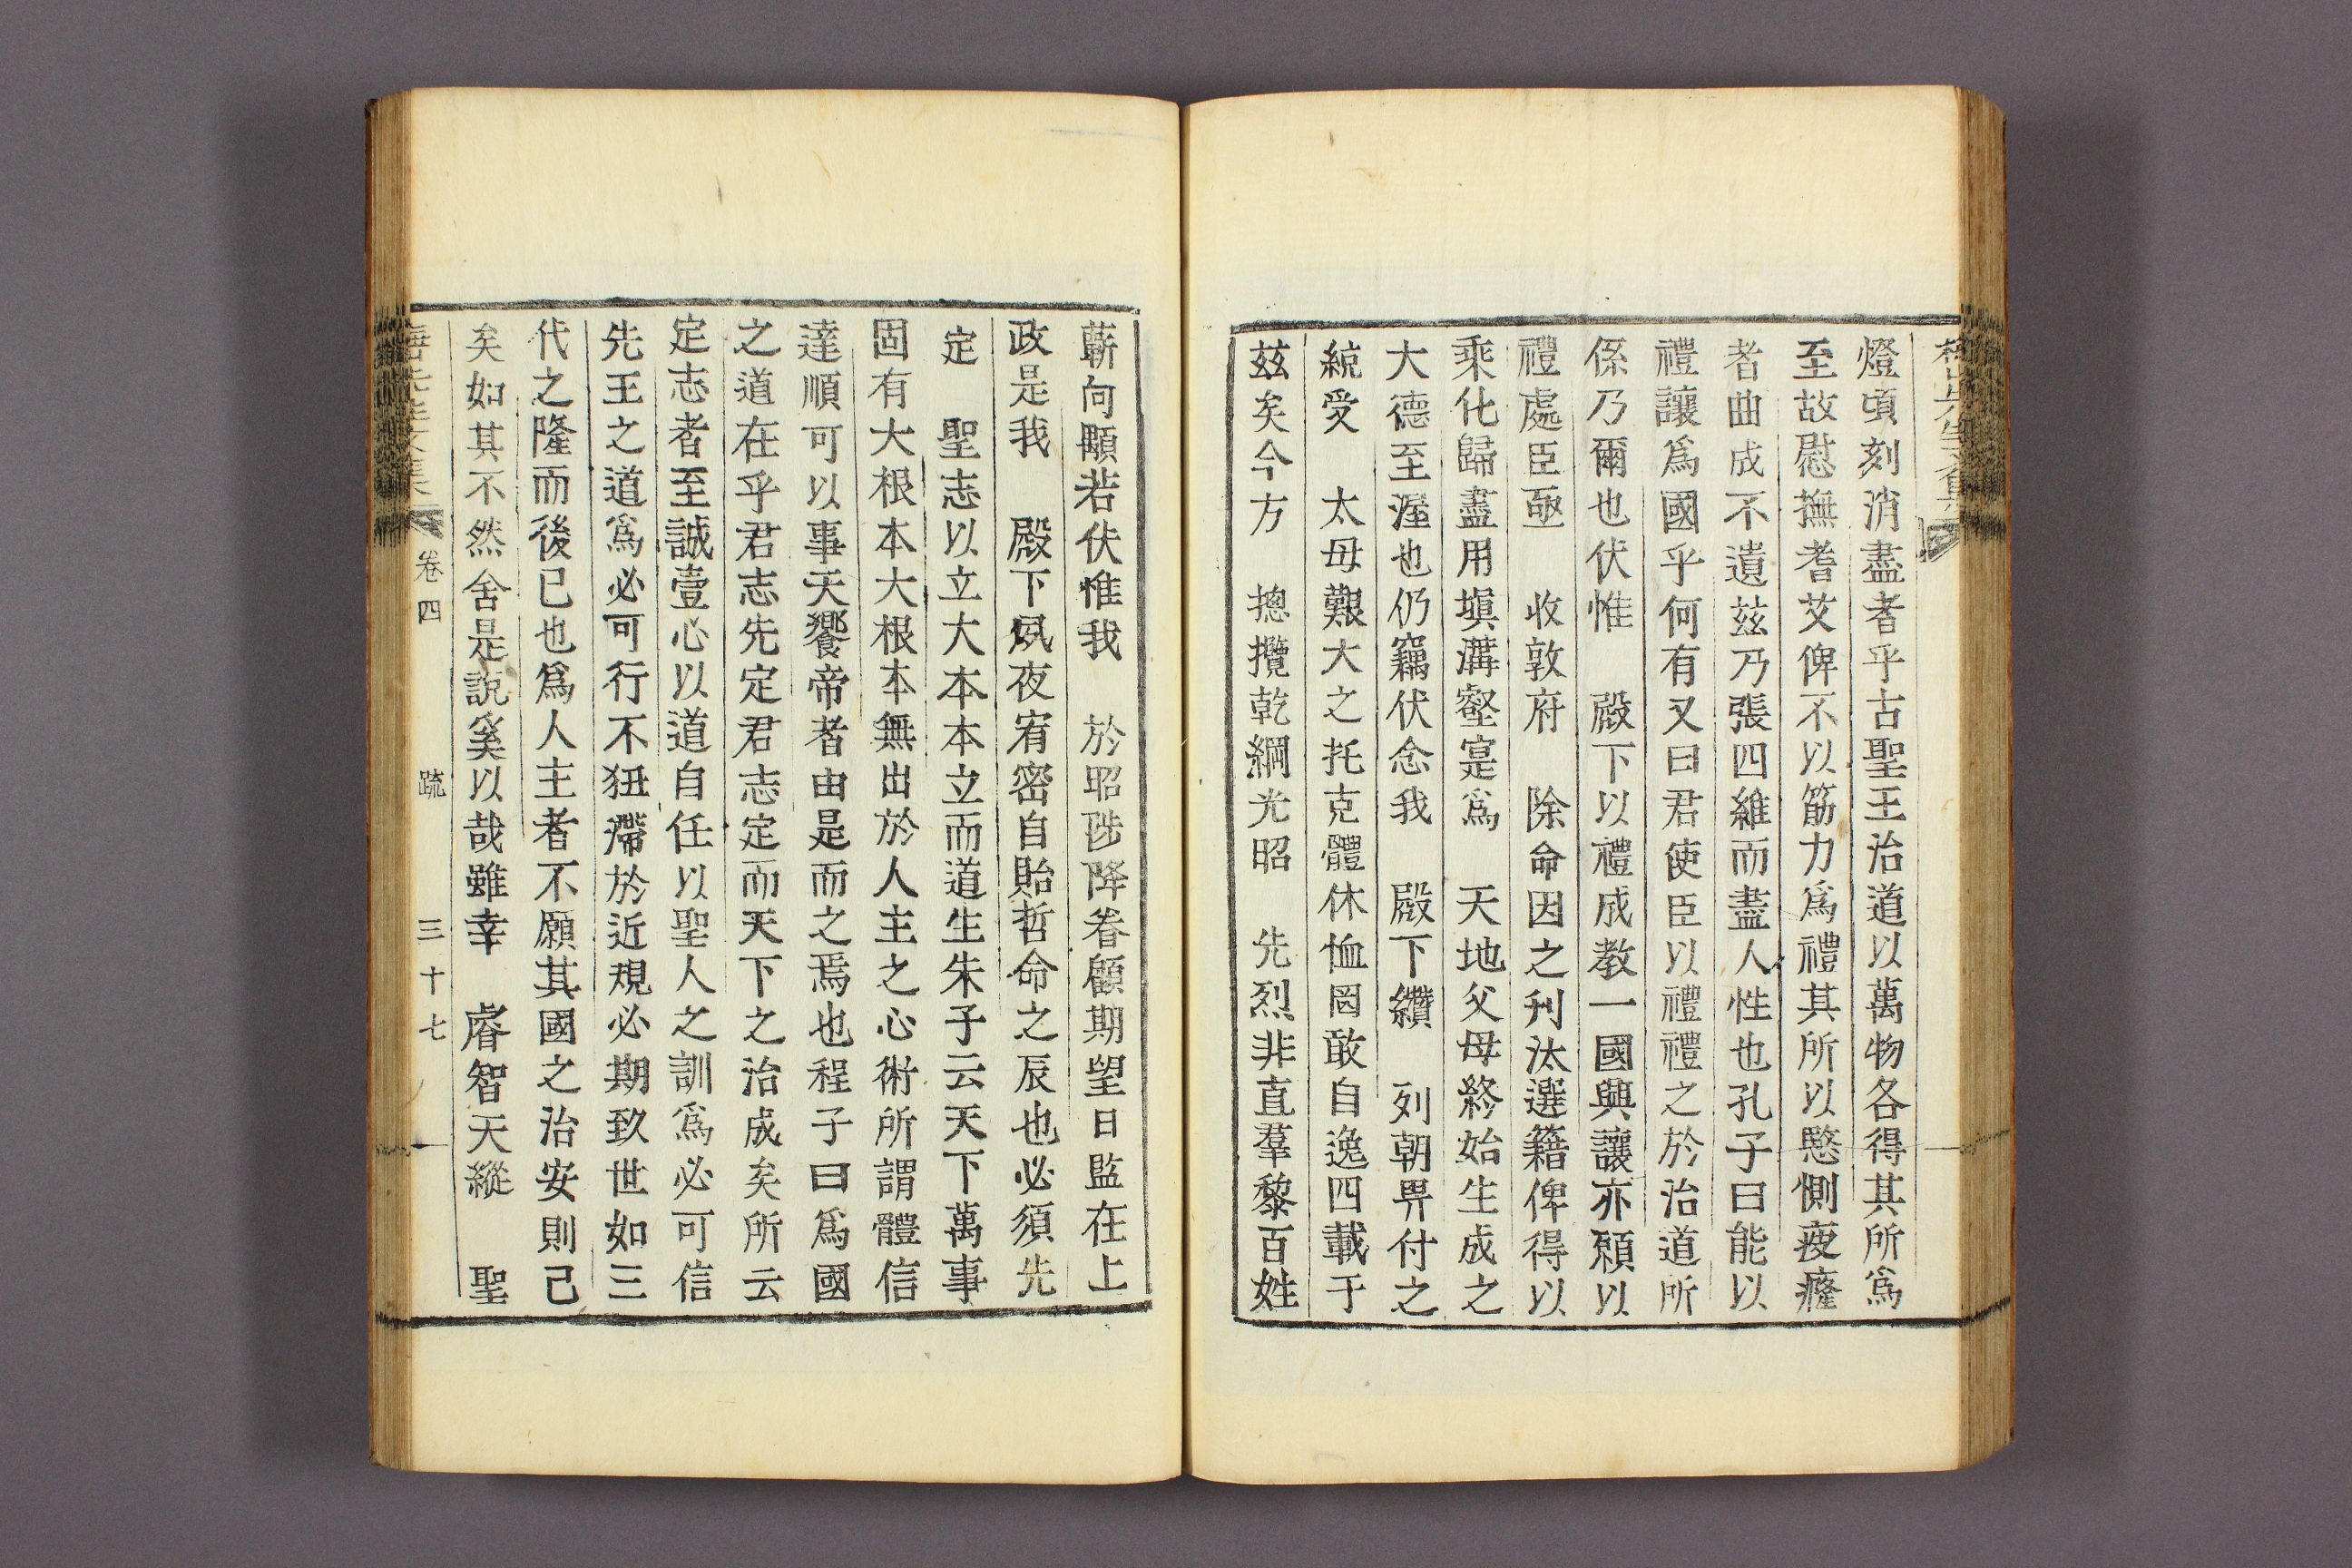 燈頃刻消盡者乎古聖王治道以萬物各得其所爲
至故慰撫耆艾俾不以筋力爲禮其所以愍惻疲癃
者曲成不遺玆乃張四維而盡人性也孔子曰能以
禮讓爲國乎何有又曰君使臣以禮禮之於治道所
係乃爾也伏惟 殿下以禮成敎一國興讓亦願以
禮處臣亟 收敦府 除命因之刋汰選籍俾得以
乘化歸盡用塡溝壑寔爲 天地父母終始生成之
大德至渥也仍竊伏念我 殿下纘 列朝畀付之
統受 太母艱大之托克體休恤罔敢自逸四載于
玆矣今方 摠攬乾綱光昭 先烈非直羣黎百姓
蘄向顒若伏惟我 於昭陟降眷顧期望日監在上
政是我 殿下夙夜宥密自貽哲命之辰也必須先
定 聖志以立大本本立而道生朱子云天下萬事
固有大根本大根本無出於人主之心術所謂體信
達順可以事天饗帝者由是而之焉也程子曰爲國
之道在乎君志先定君志定而天下之治成矣所云
定志者至誠壹心以道自任以聖人之訓爲必可信
先王之道爲必可行不狃滯於近規必期致世如三
代之隆而後已也爲人主者不願其國之治安則已
矣如其不然舍是說奚以哉雖幸 睿智天縱 聖
卷四 疏 三十七